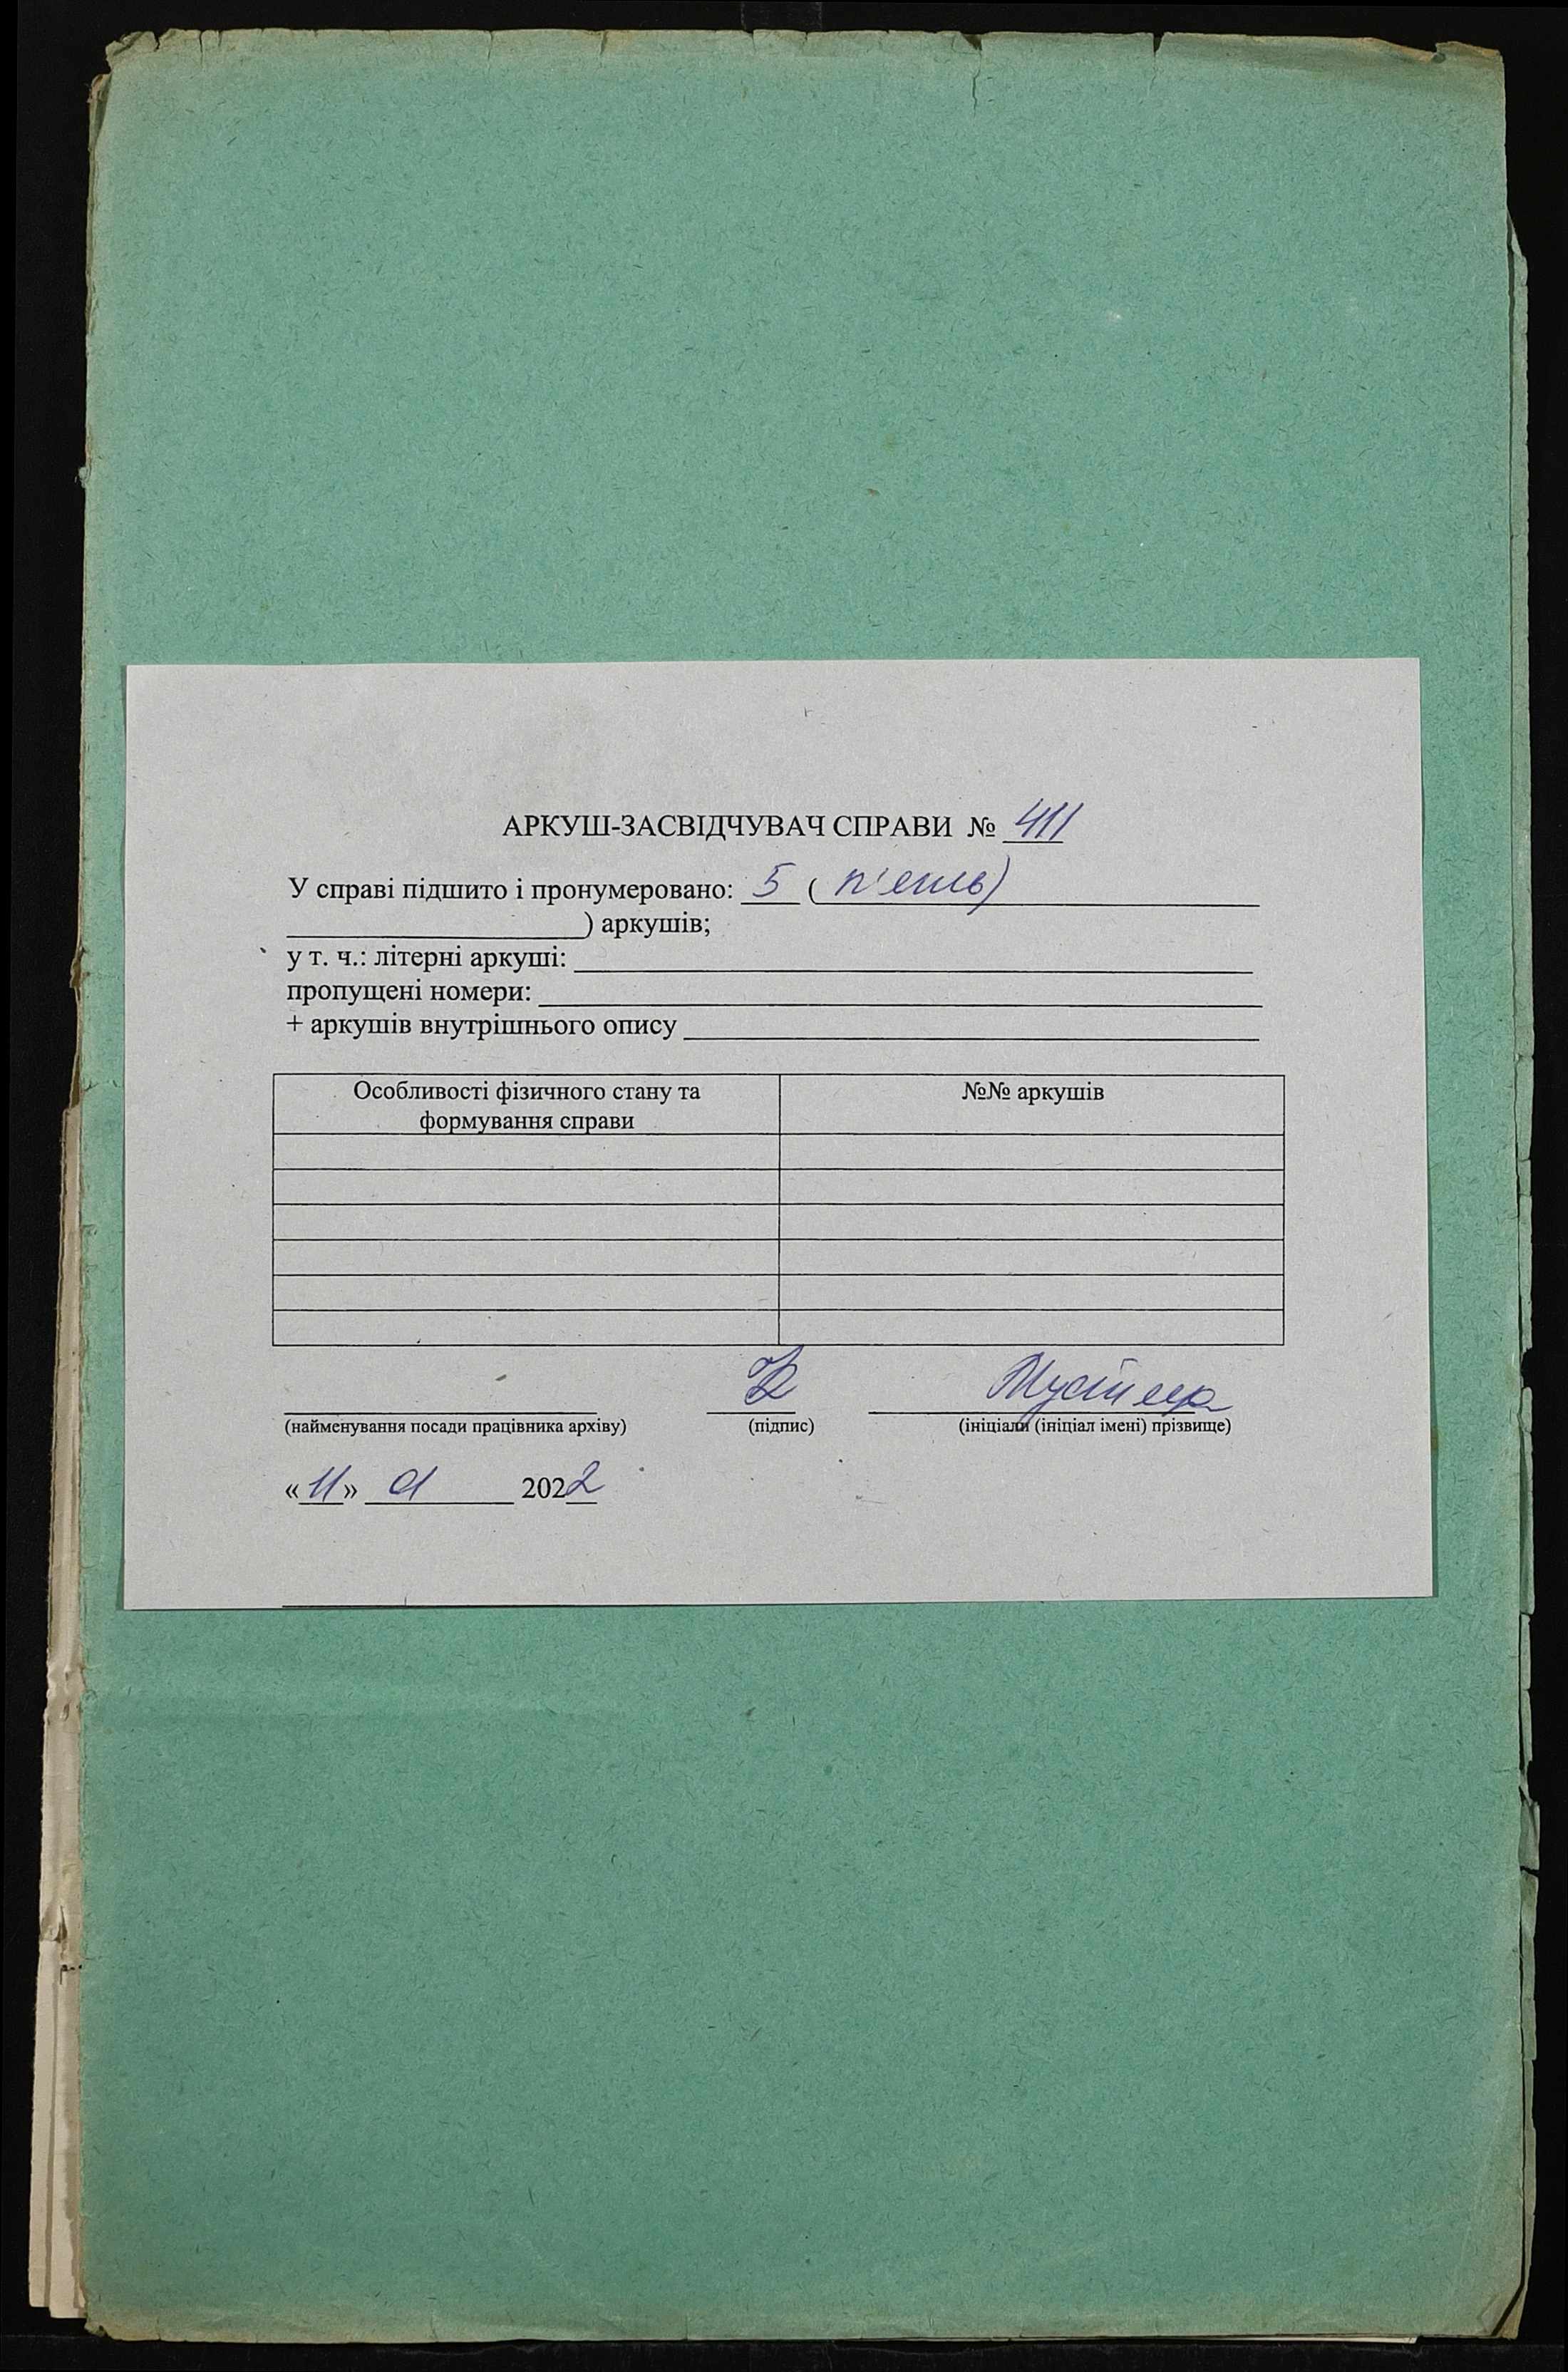 АРКУШ-ЗАСВІДЧУВАЧ СПРАВИ № 411
У справі підшито і пронумеровано: 5 ( п'ять)
) аркушів;
у т. ч.: літерні аркуші:
пропущені номери:
+ аркушів внутрішнього опису
Особливості фізичного стану та формування справи
№№ аркушів
(найменування посади працівника архіву)
(підпис)
(ініціали (ініціал імені) прізвище)
«11» 01 2022